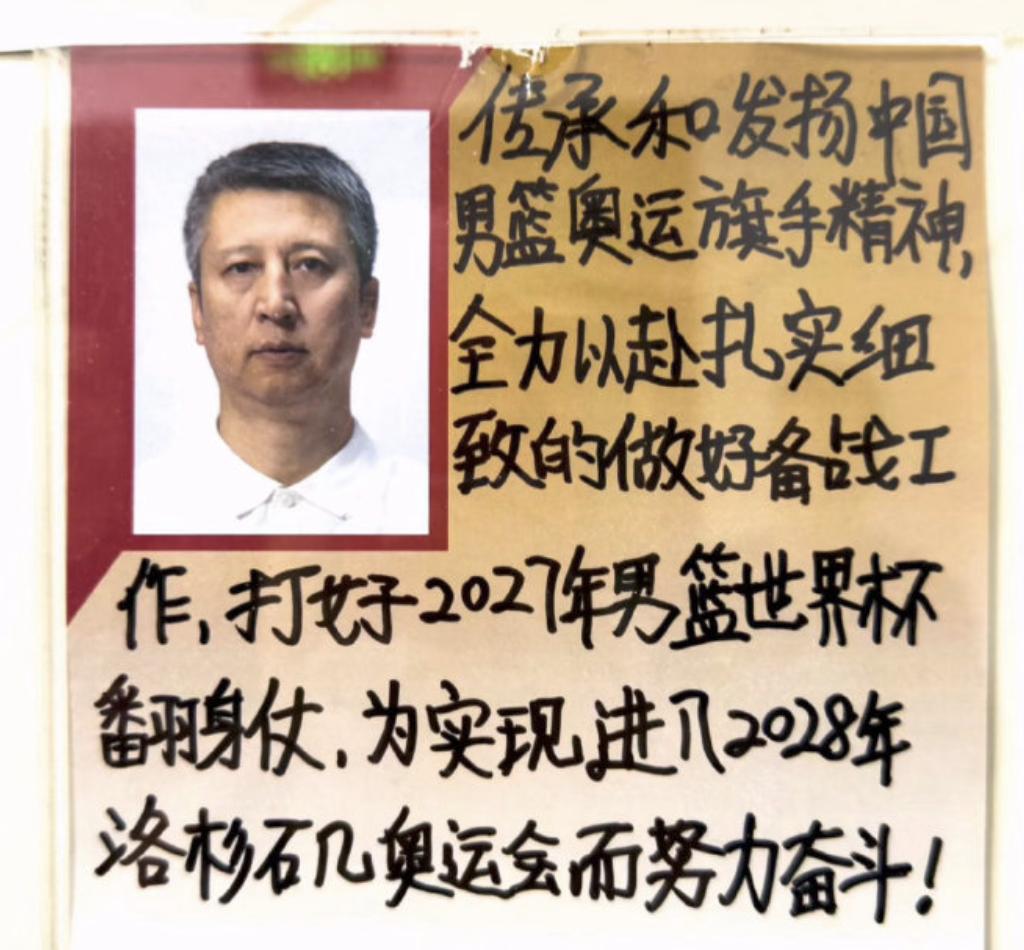 传承和发扬中国
男篮奥运旗手精神,
全力以赴扎实细
致的做好备战工
作,打好2027年男篮世界杯
翻身仗,为实现进入2028年
洛杉矶奥运会而努力奋斗!